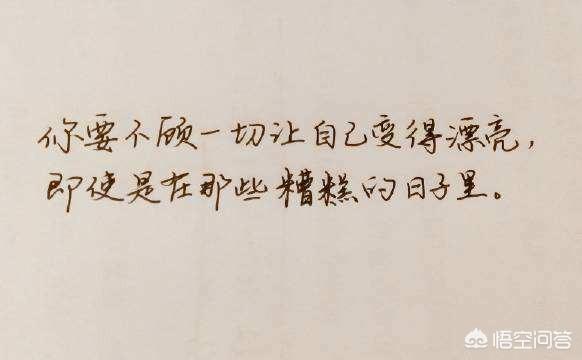 你要不顾一切让自己变得漂亮，
即使是在那些糟糕的日子里。
悟空问答